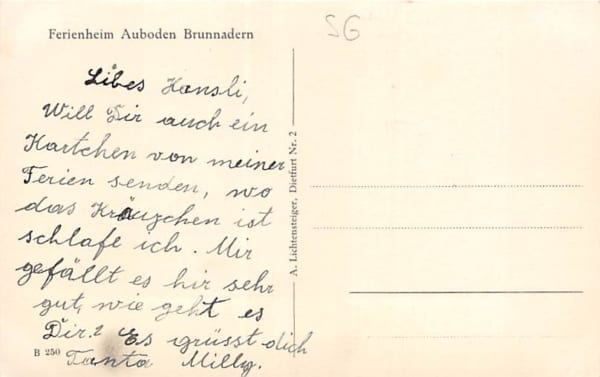 Ferienheim Auboden Brunnadern
SG
Libes Hansli,
Will Dir auch ein
Kartchen von meiner
Ferien senden, wo
das Kräuzchen ist
schlafe ich. Mir
gefällt es hir sehr
gut, wie geht es
Dir? Es grüsst dich
Tanta Milly.
B 250
A. Lichtensteiger, Dietfurt Nr. 2